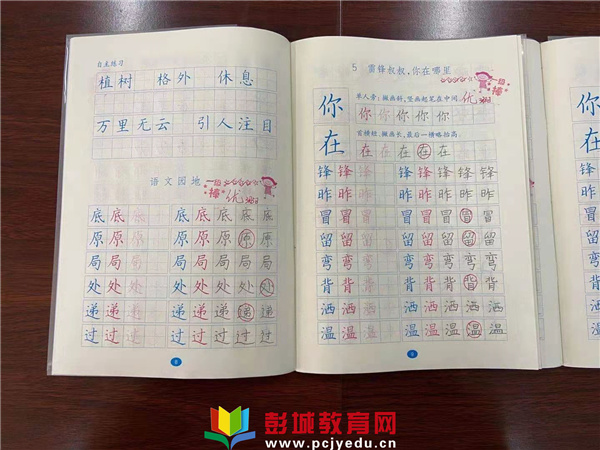 自主练习
植树 格外 休息
万里无云 引人注目
语文园地
一级棒
优
底 底 底 底 底 底 底 底
原 原 原 原 原 原 原 原
局 局 局 局 局 局 局 局
处 处 处 处 处 处 处 处
递 递 递 递 递 递 递 递
过 过 过 过 过 过 过 过
8
5 雷锋叔叔,你在哪里
一级棒
优
你
单人旁:撇画斜,竖画起笔在中间。
你 你 你 你 你
在
首横短,撇画长,最后一横略抬高。
在 在 在 在 在
锋 锋 锋 锋 锋 锋 锋
昨 昨 昨 昨 昨 昨 昨
冒 冒 冒 冒 冒 冒 冒
留 留 留 留 留 留 留
弯 弯 弯 弯 弯 弯 弯
背 背 背 背 背 背 背
洒 洒 洒 洒 洒 洒 洒
温 温 温 温 温 温 温
9
彭城教育网
www.pcjyedu.cn